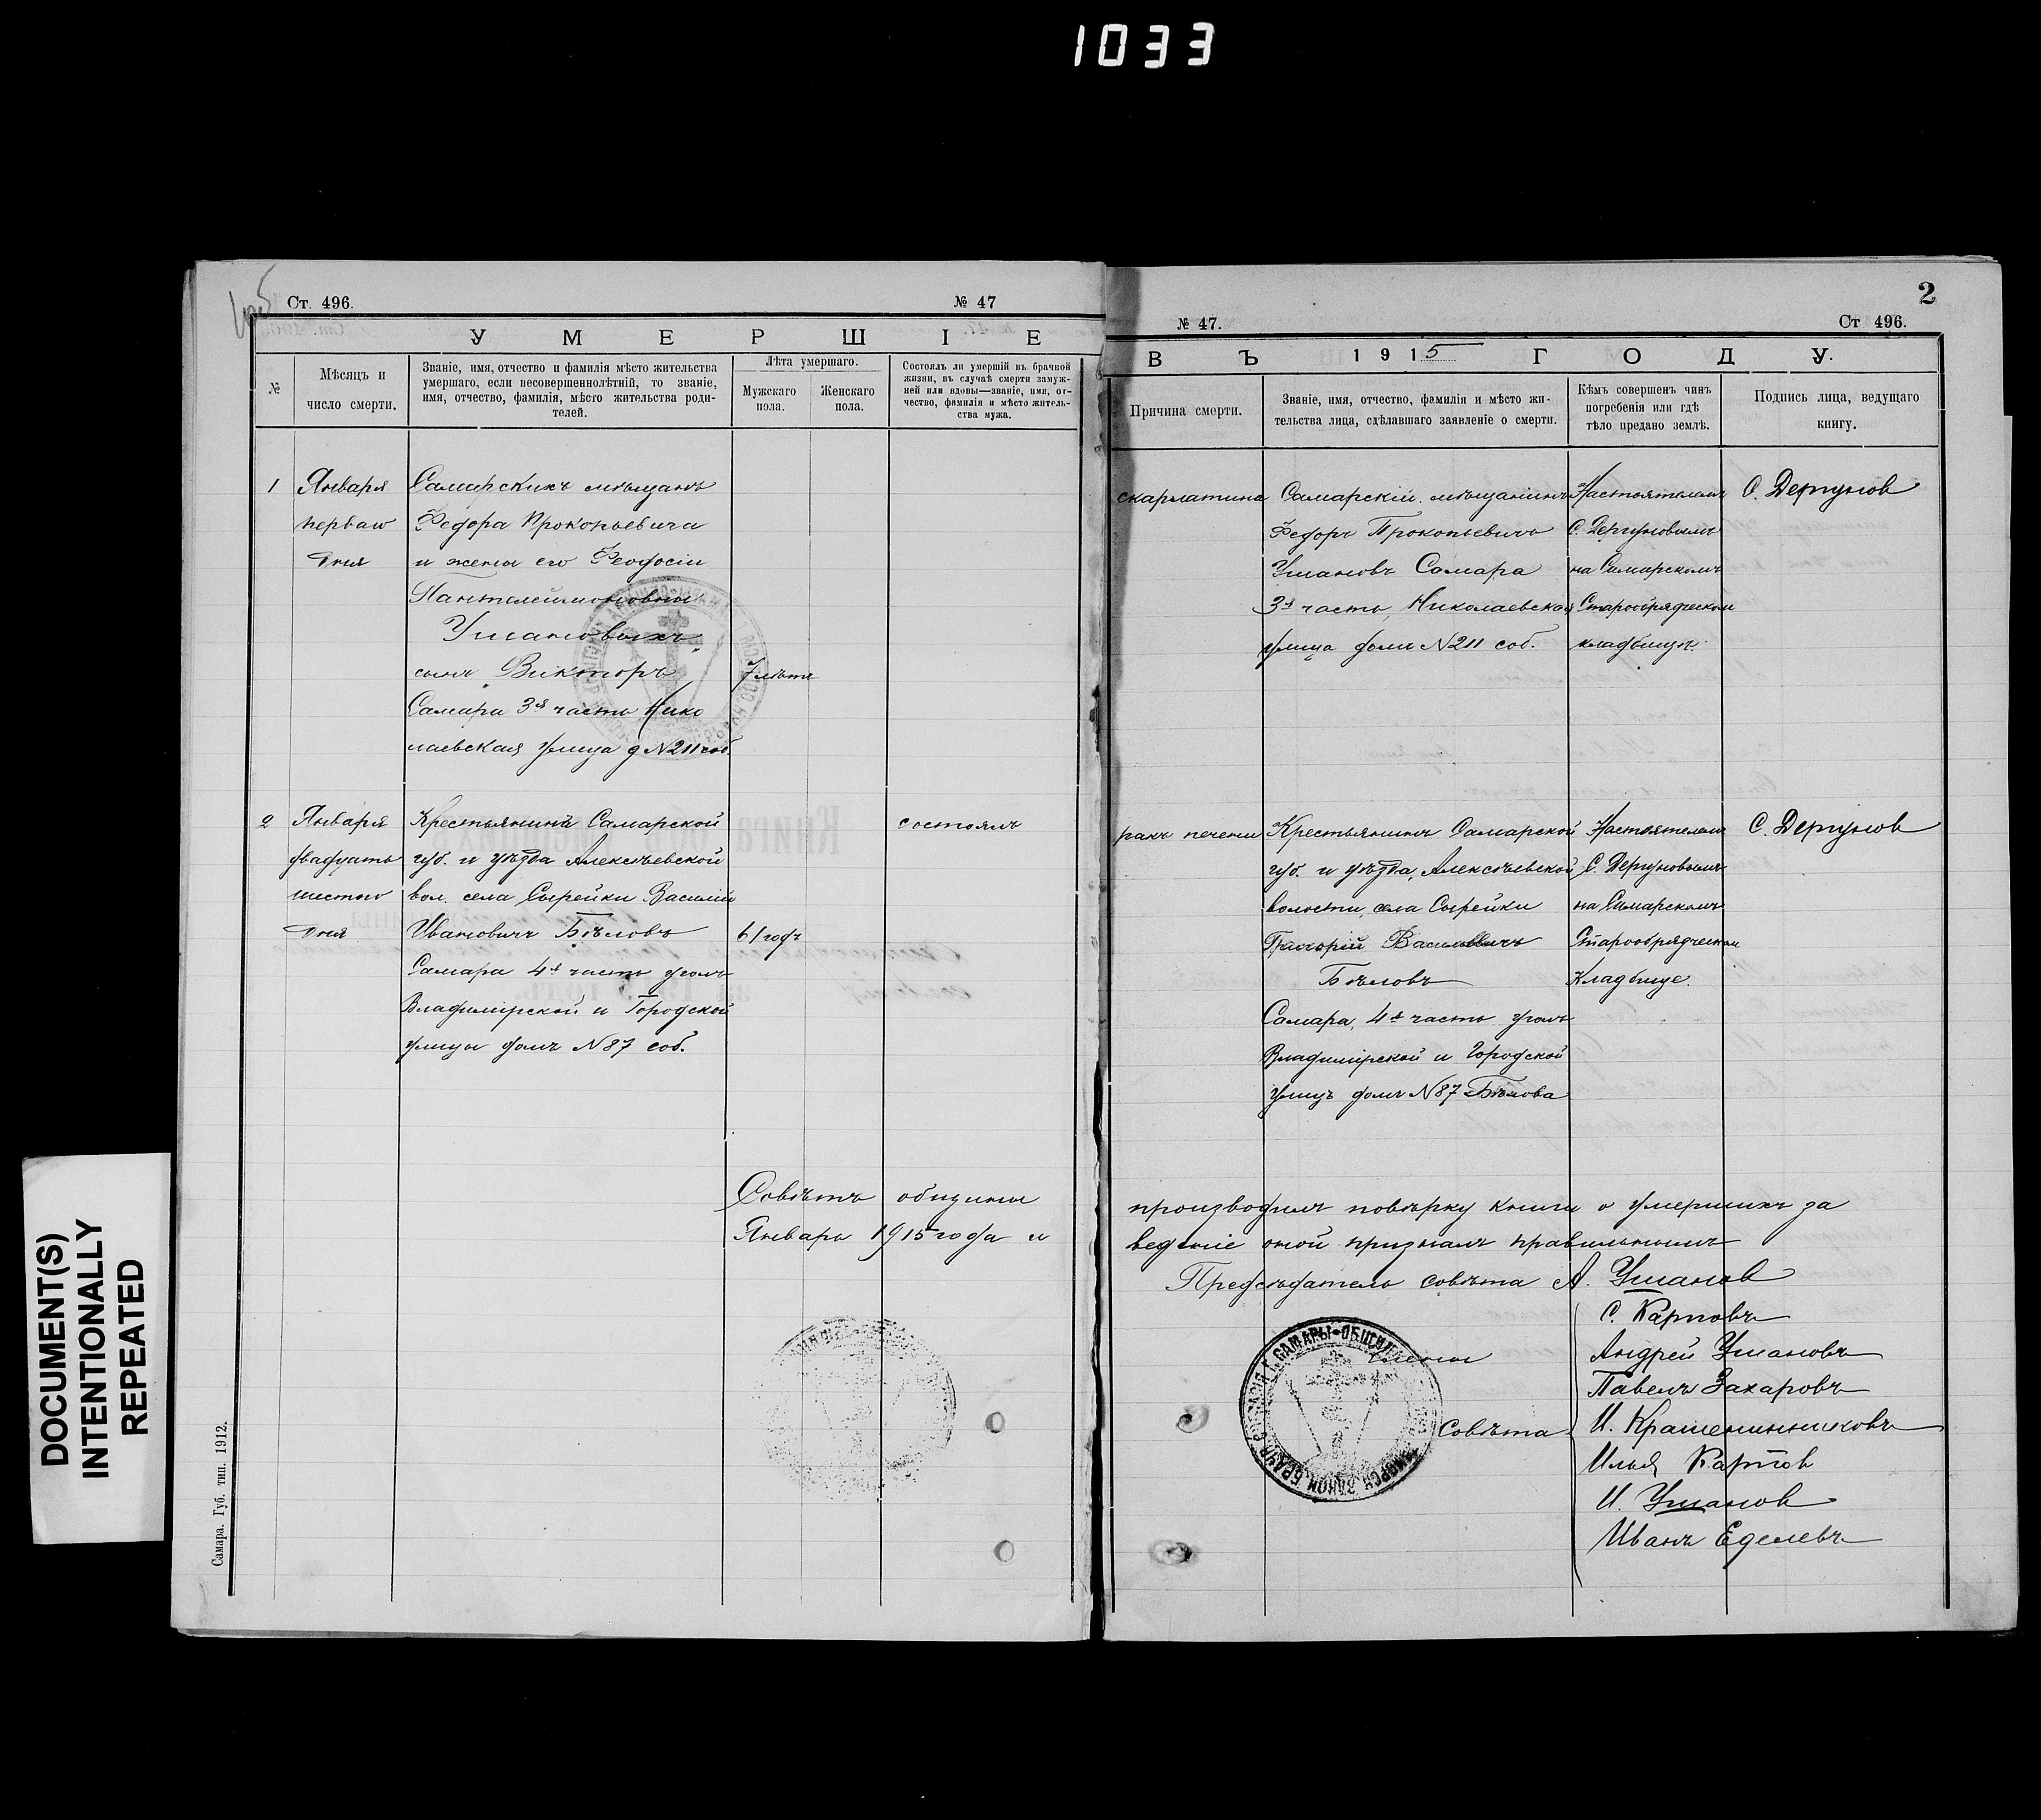 1033
DOCUMENT(S)
INTENTIONALLY
REPEATED
Ст. 496.
№ 47
У М Е Р Ш І Е
№
Мѣсяцъ и
число смерти.
Званіе, имя, отчество и фамилія мѣсто жительства
умершаго, если несовершеннолѣтній, то званіе,
имя, отчество, фамилія, мѣсто жительства роди-
телей.
Лѣта умершаго.
Мужскаго
пола.
Женскаго
пола.
Состоялъ ли умершій въ брачной
жизни, въ случаѣ смерти замуж-
ней или вдовы—званіе, имя, от-
чество, фамилія и мѣсто житель-
ства мужа.
1
Января
перваго
дня
Самарскихъ мѣщанъ
Федора Прокопьевича
и жены его Феодосіи
Пантелеймоновны
Ушановыхъ
сынъ „Викторъ"
Самара 3я часть Нико
лаевская улица д N211 соб.
7 лѣтъ
2
Января
двадцать
шестого
дня
Крестьянинъ Самарской
губ. и уѣзда Алексѣевской
вол. села Сырейки Василій
Ивановичъ Бѣловъ
Самара 4я часть уголъ
Владимірской и Городской
улицы домъ N87 соб.
61 годъ
состоялъ
Совѣтъ общины
Январь 1915 года и
Самара. Губ. тип. 1912.
2
№ 47.
Ст 496.
В Ъ 1915 Г О Д У.
Причина смерти.
Званіе, имя, отчество, фамилія и мѣсто жи-
тельства лица, сдѣлавшаго заявленіе о смерти.
Кѣмъ совершенъ чинъ
погребенія или гдѣ
тѣло предано землѣ.
Подпись лица, ведущаго
книгу.
скарлатина
Самарскій мѣщанинъ
Федоръ Прокопьевичъ
Ушановъ Самара
3я часть, Николаевская
улица домъ N211 соб.
Настоятелемъ
С. Дергуновымъ
на Самарскомъ
Старообрядческом
кладбищѣ.
С. Дергунов
ракъ печени
Крестьянинъ Самарской
губ. и уѣзда, Алексѣевской
волости, села Сырейки
Григорій Васильевичъ
Бѣловъ
Самара, 4я часть уголъ
Владимірской и Городской
улицъ домъ N87 Бѣлова
Настоятелемъ
С. Дергуновымъ
на Самарскомъ
Старообрядческом
Кладбище.
С. Дергунов
производилъ повѣрку книги о умершихъ за
веденіе оной призналъ правильнымъ
Предсѣдатель совѣта А. Ушанов
Члены
Совѣта
С. Карповъ
Андрей Ушановъ
Павелъ Захаровъ
И. Крашенинниковъ
Илья Карпов
И. Ушанов
Иванъ Еделевъ